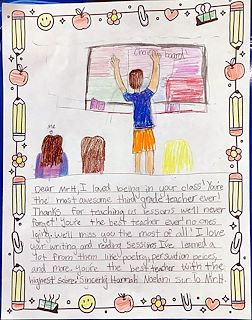 Choice board!
me
Dear Mr.H, I loved being in your class! You're
the most awesome third grade teacher ever!
Thanks for teaching us lessons we'll never
forget! You're the best teacher ever! no ones
We'll miss you the most of all! I love
your writing and reading sessions I've learned a
lot from them like! poetry, persuation peices,
and more. you're the best teacher with the
highest score! Sincerly Hannah
to Mr.H.